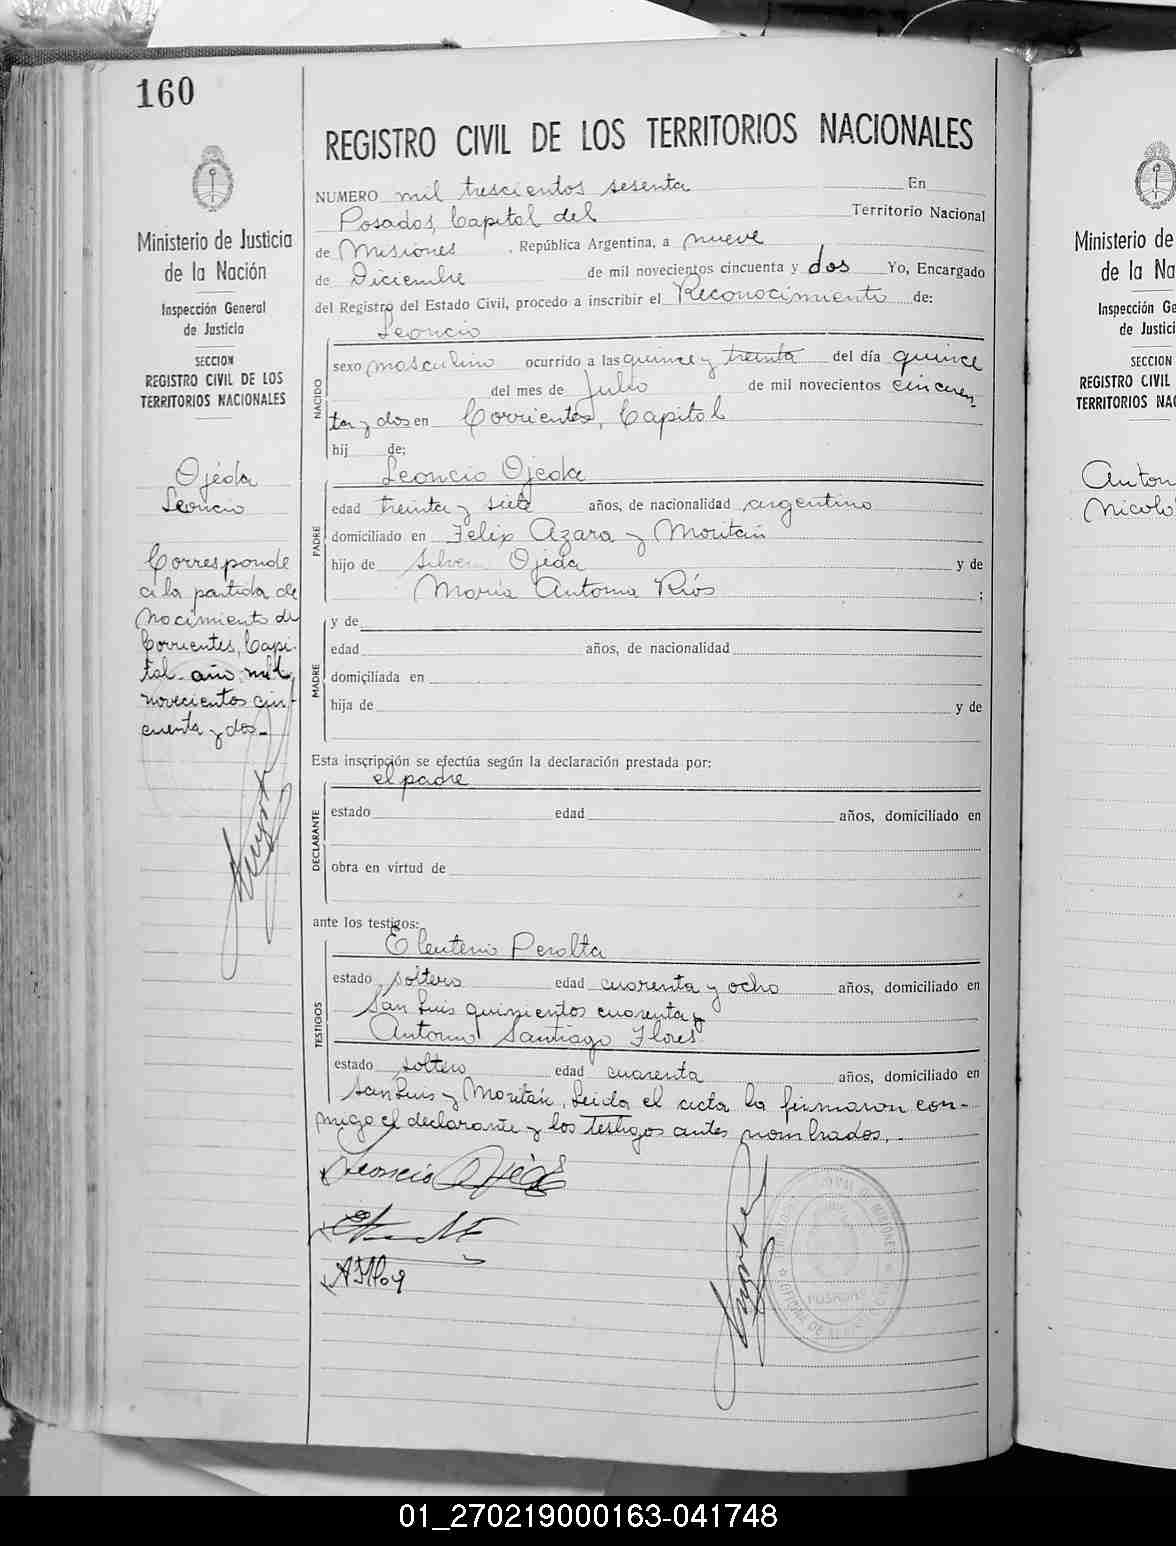 160
Ministerio de Justicia
de la Nación
Inspección General
de Justicia
SECCION
REGISTRO CIVIL DE LOS
TERRITORIOS NACIONALES
Ojeda
Leoncio
Corresponde
a la partida de
Nacimiento de
Corrientes, Capi-
tal año mil
novecientos cin-
cuenta y dos.-
REGISTRO CIVIL DE LOS TERRITORIOS NACIONALES
NUMERO mil trescientos sesenta En
Posadas, Capital del Territorio Nacional
de Misiones, República Argentina, a nueve
de Diciembre de mil novecientos cincuenta y dos Yo, Encargado
del Registro del Estado Civil, procedo a inscribir el Reconocimiento de:
Leoncio
NACIDO
sexo masculino ocurrido a las quince y treinta del día quince
del mes de Julio de mil novecientos cincuen
ta y dos en Corrientes, Capital
hij de:
Leoncio Ojeda
PADRE
edad treinta y siete años, de nacionalidad argentino
domiciliado en Felix Azara y
hijo de Ojeda y de
Maria Antonia Ríos ;
MADRE
y de
edad años, de nacionalidad
domiciliada en
hija de y de
Esta inscripción se efectúa según la declaración prestada por:
el padre
DECLARANTE
estado edad años, domiciliado en
obra en virtud de
ante los testigos:
Eleuterio Peralta
TESTIGOS
estado soltero edad cuarenta y ocho años, domiciliado en
San Luis quinientos cuarenta y
Antonio Santiago Flores
estado soltero edad cuarenta años, domiciliado en
San Luis y Leida el acta la firmaron con-
migo el declarante y los testigos antes nombrados.-
Leoncio Ojeda
POSADAS
Ministerio de
de la Na
Inspección Ge
de Justici
SECCION
REGISTRO CIVIL
TERRITORIOS NAC
Anton
Nicolo
01_270219000163-041748